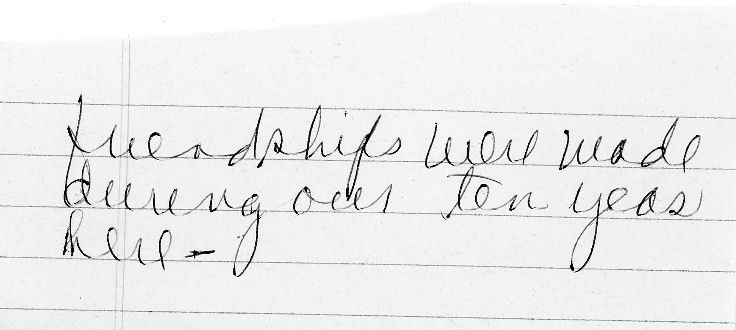 friendships were made
during our ten years
here-